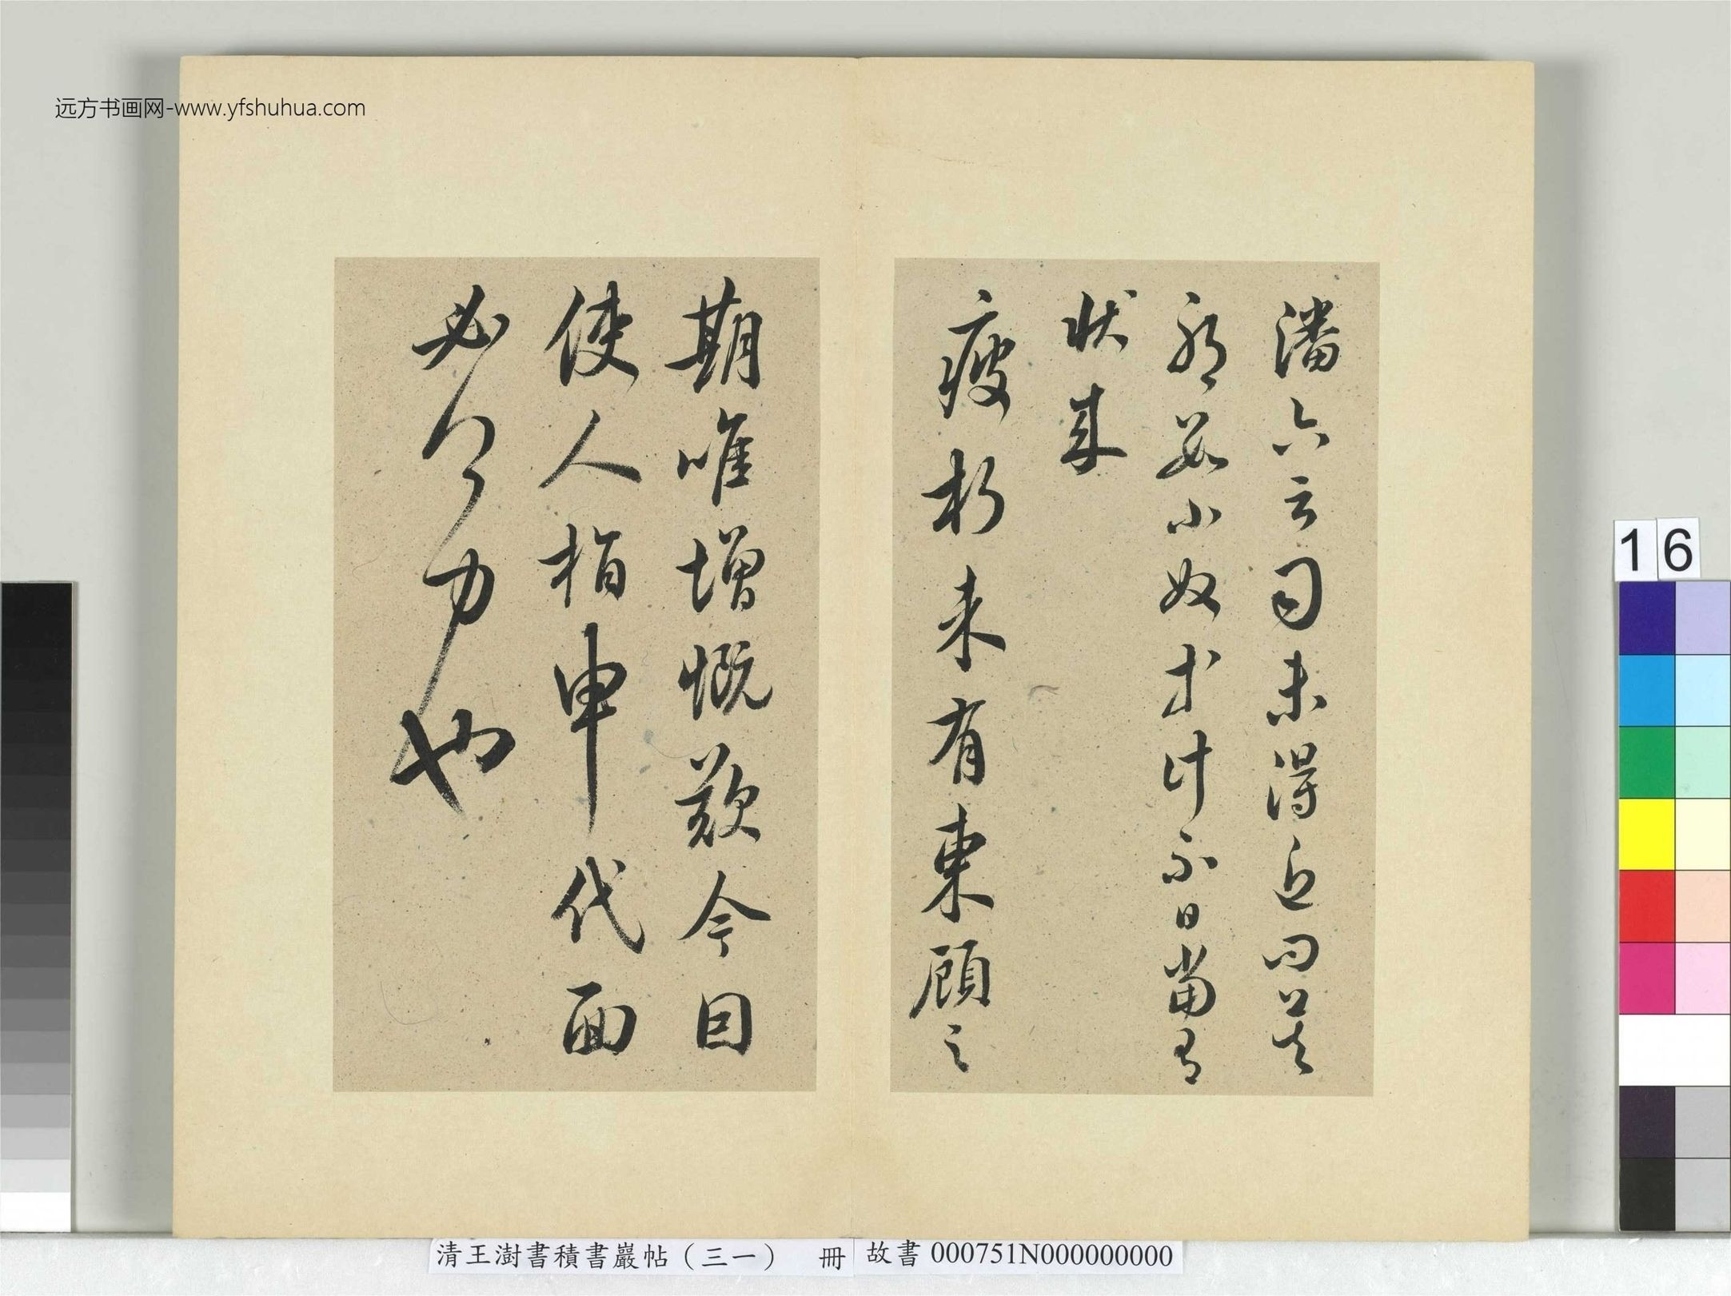 远方书画网-www.yfshuhua.com
潘六云司未得近问
小奴才計不日當有
狀來
疲朽未有東顧之
期唯增慨歎今因
使人指申代面
必力也
16
清王澍書積書巖帖(三一) 冊 故書 000751N000000000